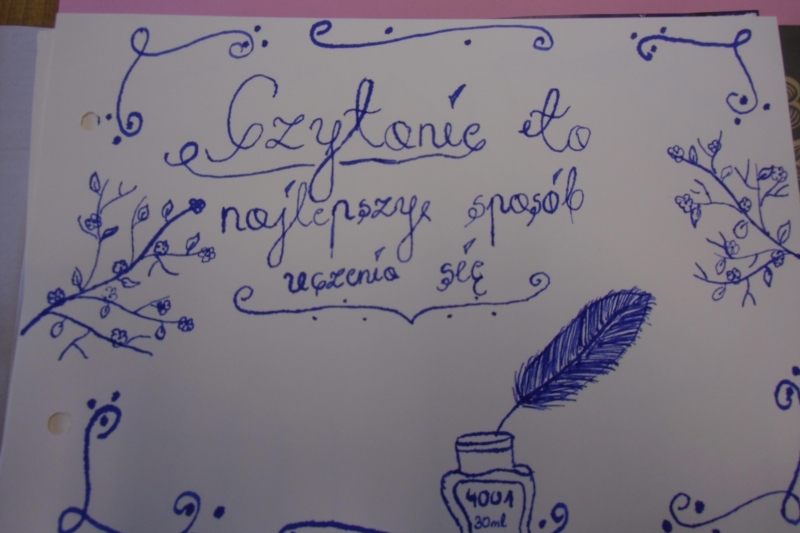 Czytanie to
najlepszy sposób
uczenia się
4001
30ml